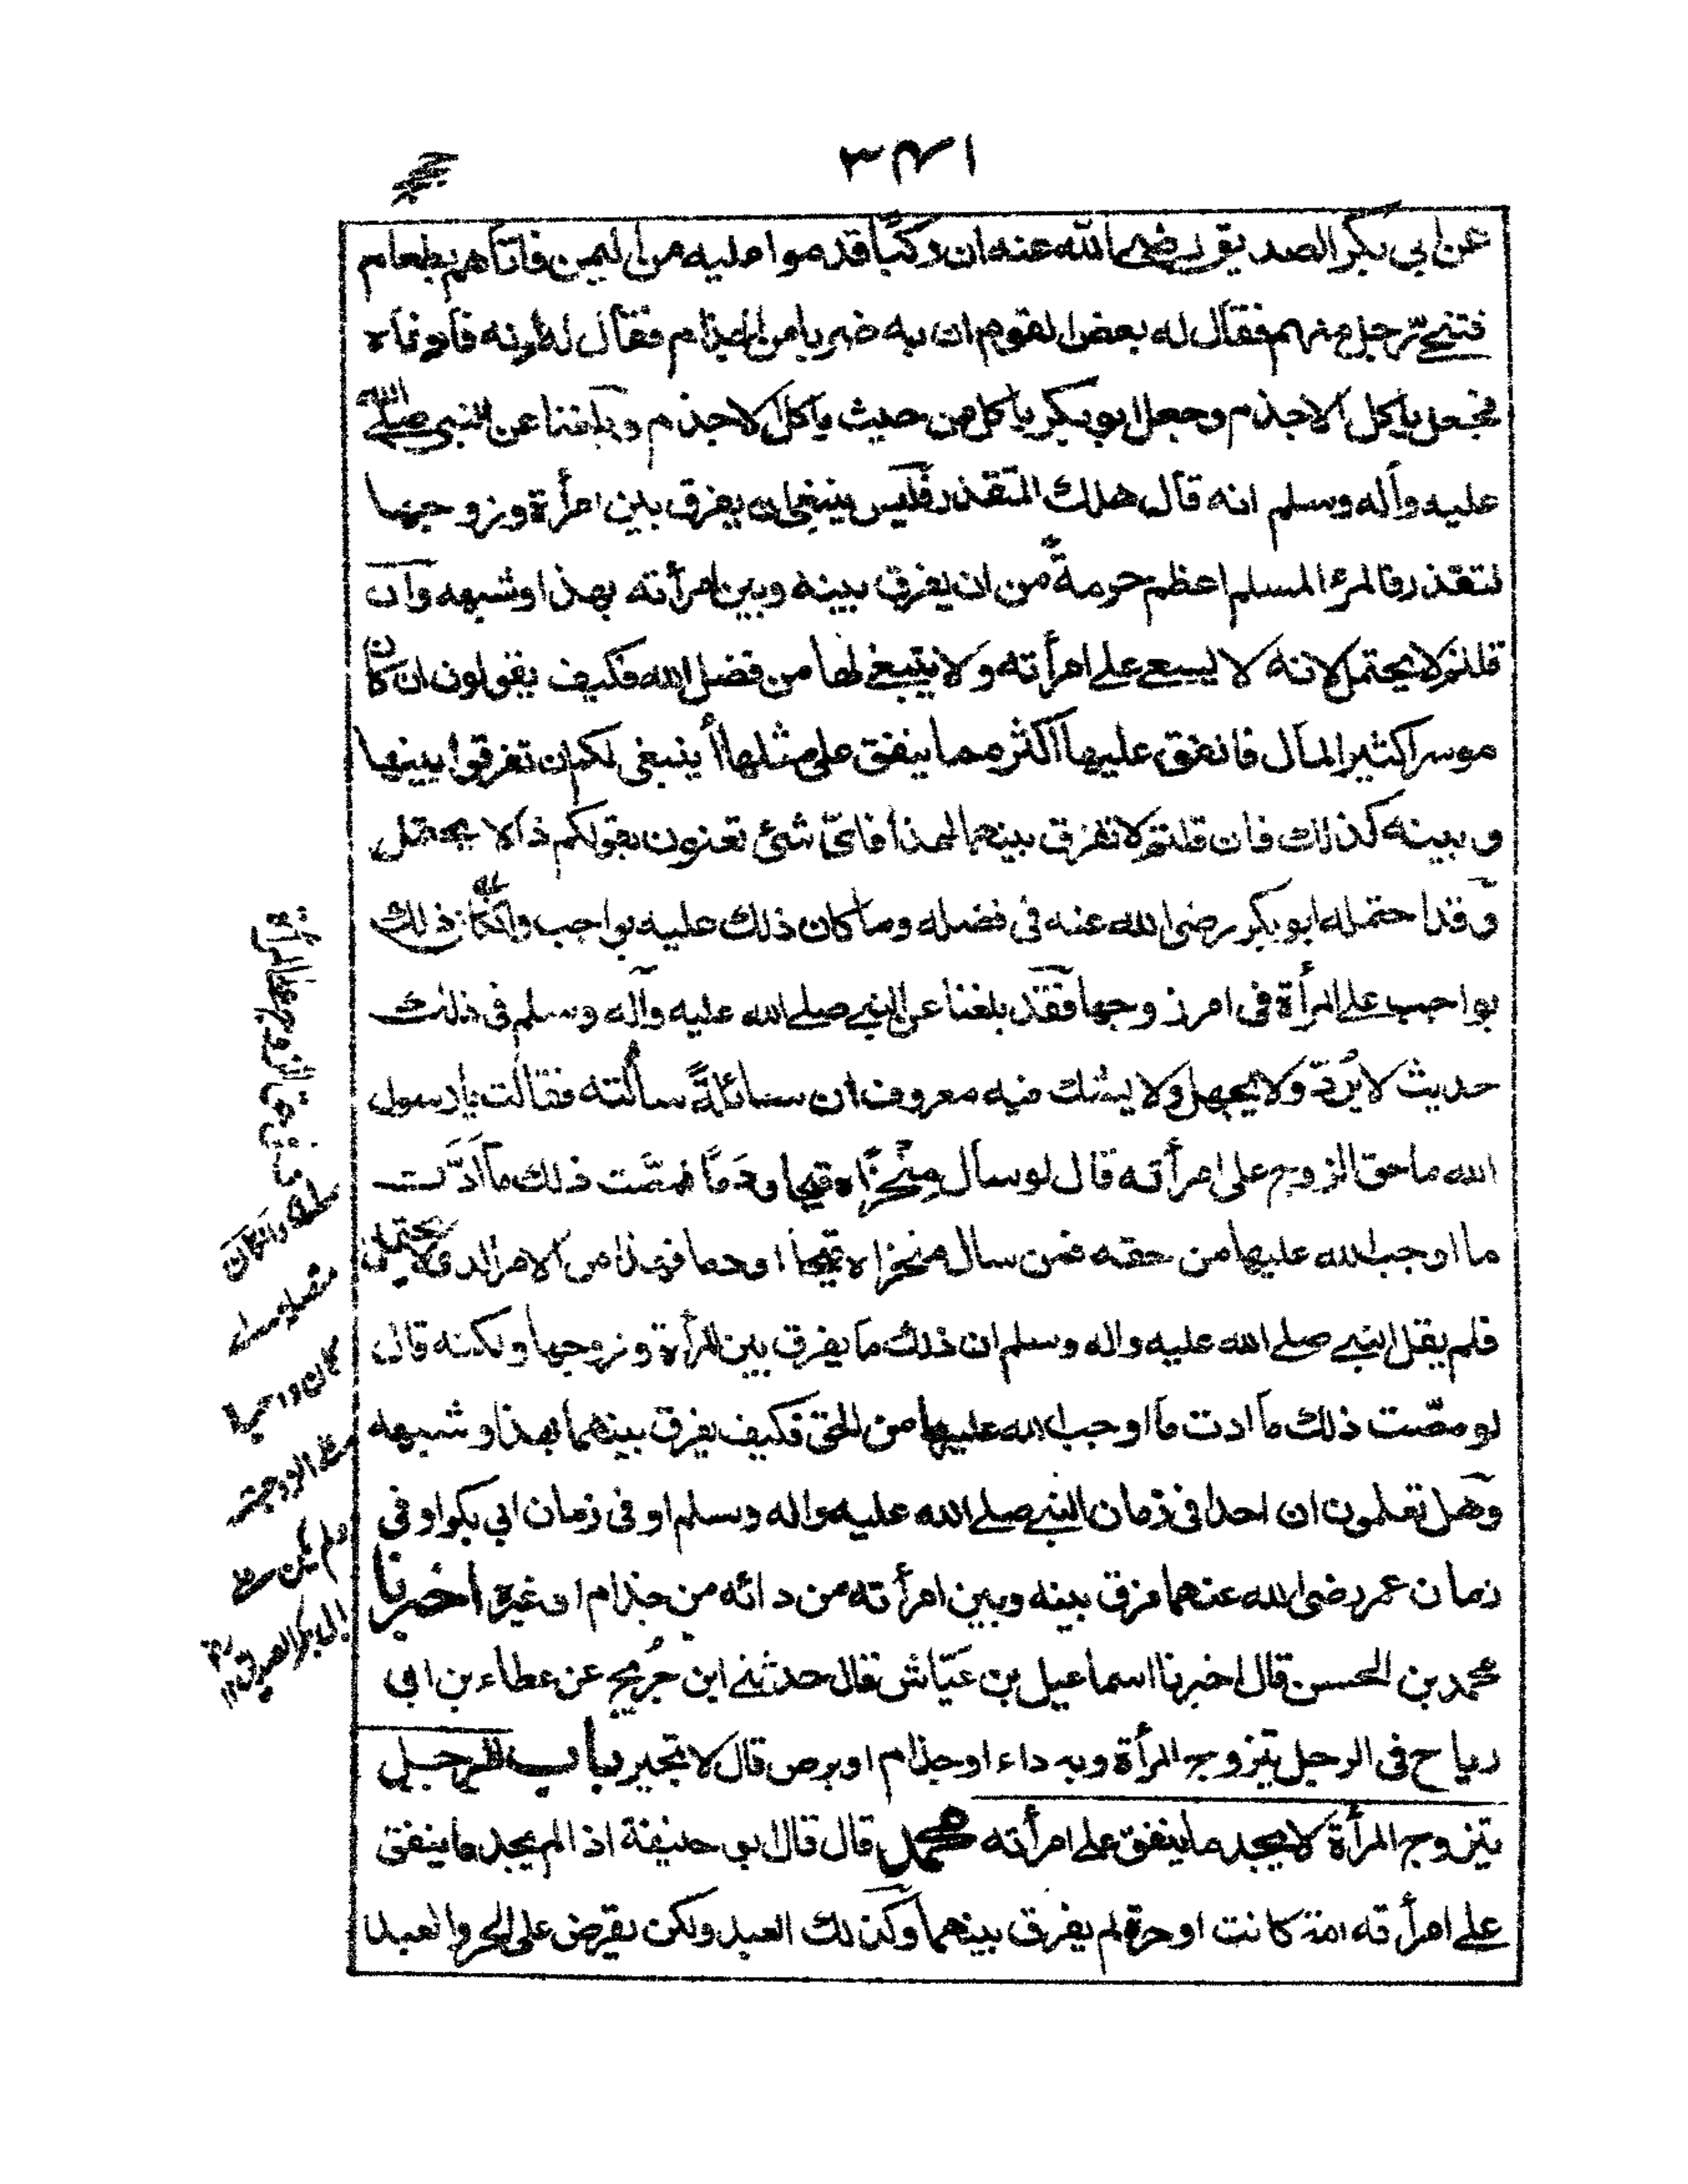 ٣٤١
عن ابي بكر الصديق رضي الله عنه ان ركبًا قدموا عليه من اليمن فاتاهم بطعام
فتنحّى رجل منهم فقال له بعض القوم ان به ضربا من الجذام فقال له ادنه فادناه
فجعل ياكل الاجذم وجعل ابو بكر ياكل من حيث ياكل الاجذم وبلغنا عن النبي صلى الله
عليه وآله وسلم انه قال هلك المتقذر فليس ينبغي ان يفرق بين امرأة وزوجها
لتقذر فالمرء المسلم اعظم حرمةً من ان يفرق بينه وبين امرأته بهذا وشبهه وان
قلتم لا يحتمل لانه لا يسع على امرأته ولا ينبغي لها من فضل الله فكيف يقولون ان كان
موسرا كثير المال فانفق عليها اكثر مما ينفق على مثلها أ ينبغي لكم ان تفرقوا بينها
وبينه كذلك فان قلتم لا نفرق بينهما لهذا فايّ شئ تعنون بقولكم ذا لا يحتمل
وقد احتمله ابو بكر رضى الله عنه فى فضله وما كان ذلك عليه بواجب وانما ذلك
بواجب على المرأة فى امر زوجها فقد بلغنا عن النبي صلى الله عليه وآله وسلم فى ذلك
حديث لا يُردّ ولا يجهل ولا يشك فيه معروف ان سائلةً سألته فقالت يا رسول
الله ما حق الزوج على امرأته قال لو سال منخراه قيحا ودمًا فمصّت ذلك ما ادّت
ما اوجب الله عليها من حقه فمن سال منخراه قيحا او دما فهذا من الامر الذى لا يحتمل
فلم يقل النبي صلى الله عليه واله وسلم ان ذلك ما يفرق بين المرأة وزوجها ولكنه قال
لو مصّت ذلك ما ادت ما اوجب الله عليها من الحق فكيف يفرق بينهما بهذا وشبهه
وهل تعلمون ان احدا فى زمان النبي صلى الله عليه واله وسلم او فى زمان ابي بكر او فى
زمان عمر رضى الله عنهما فرق بينه وبين امرأته من دائه من جذام او غيره اخبرنا
محمد بن الحسن قال اخبرنا اسماعيل بن عيّاش قال حدثنى ابن جُريج عن عطاء بن ابي
رباح فى الرجل يتزوج المرأة وبه داء او جذام او برص قال لا تخير باب الرجل
يتزوج المرأة لا يجد ما ينفق على امرأته محمد قال قال ابو حنيفة اذا لم يجد ما ينفق
على امرأته امة كانت او حرة لم يفرق بينهما وكذلك العبد ولكن يقرض على الحر والعبد